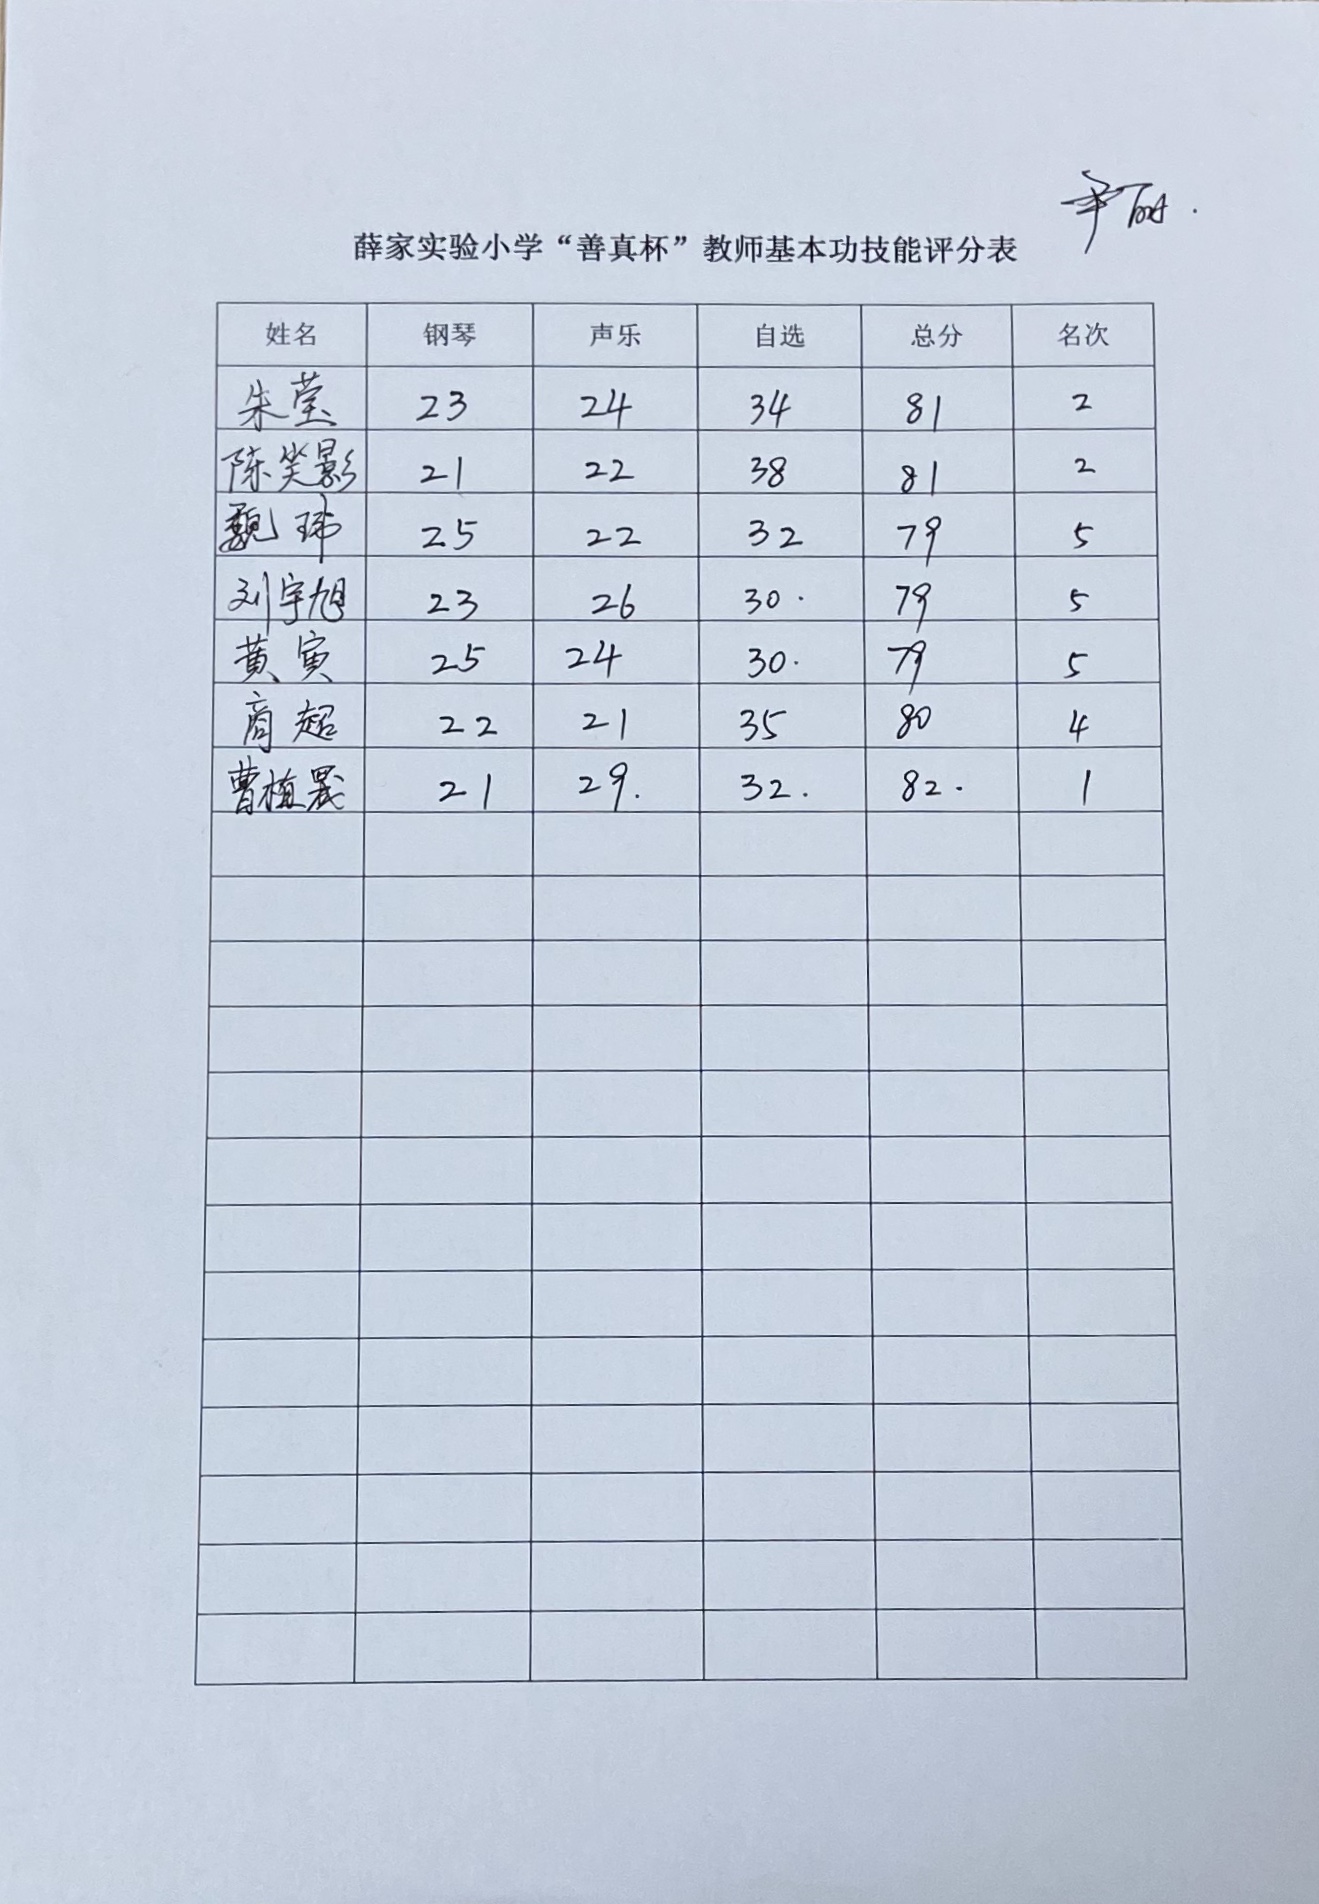 薛家实验小学“善真杯”教师基本功技能评分表
姓名 钢琴 声乐 自选 总分 名次
朱莹 23 24 34 81 2
陈笑影 21 22 38 81 2
魏玮 25 22 32 79 5
刘宇旭 23 26 30. 79 5
黄寅 25 24 30. 79 5
商超 22 21 35 80 4
曹植晟 21 29. 32. 82. 1